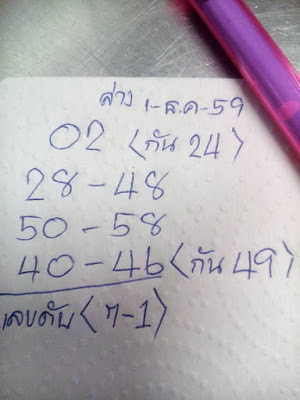 ล่าง 1-ธ.ค-59
02 <กัน 24>
28-48
50-58
40-46 <กัน 49>
เลขดับ <7-1>